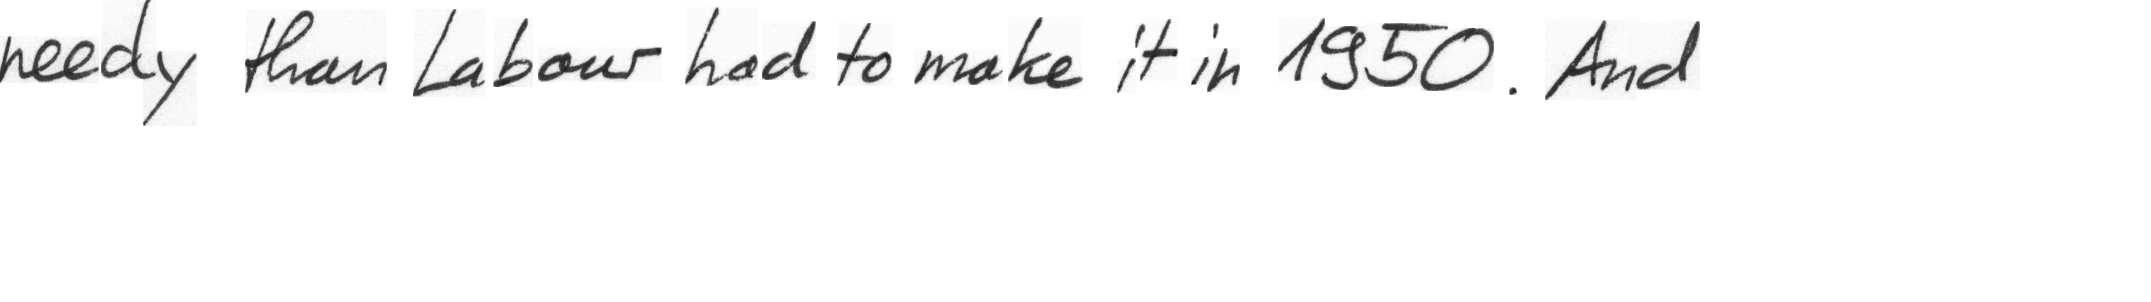 needy than Labour had to make it in 1950. And